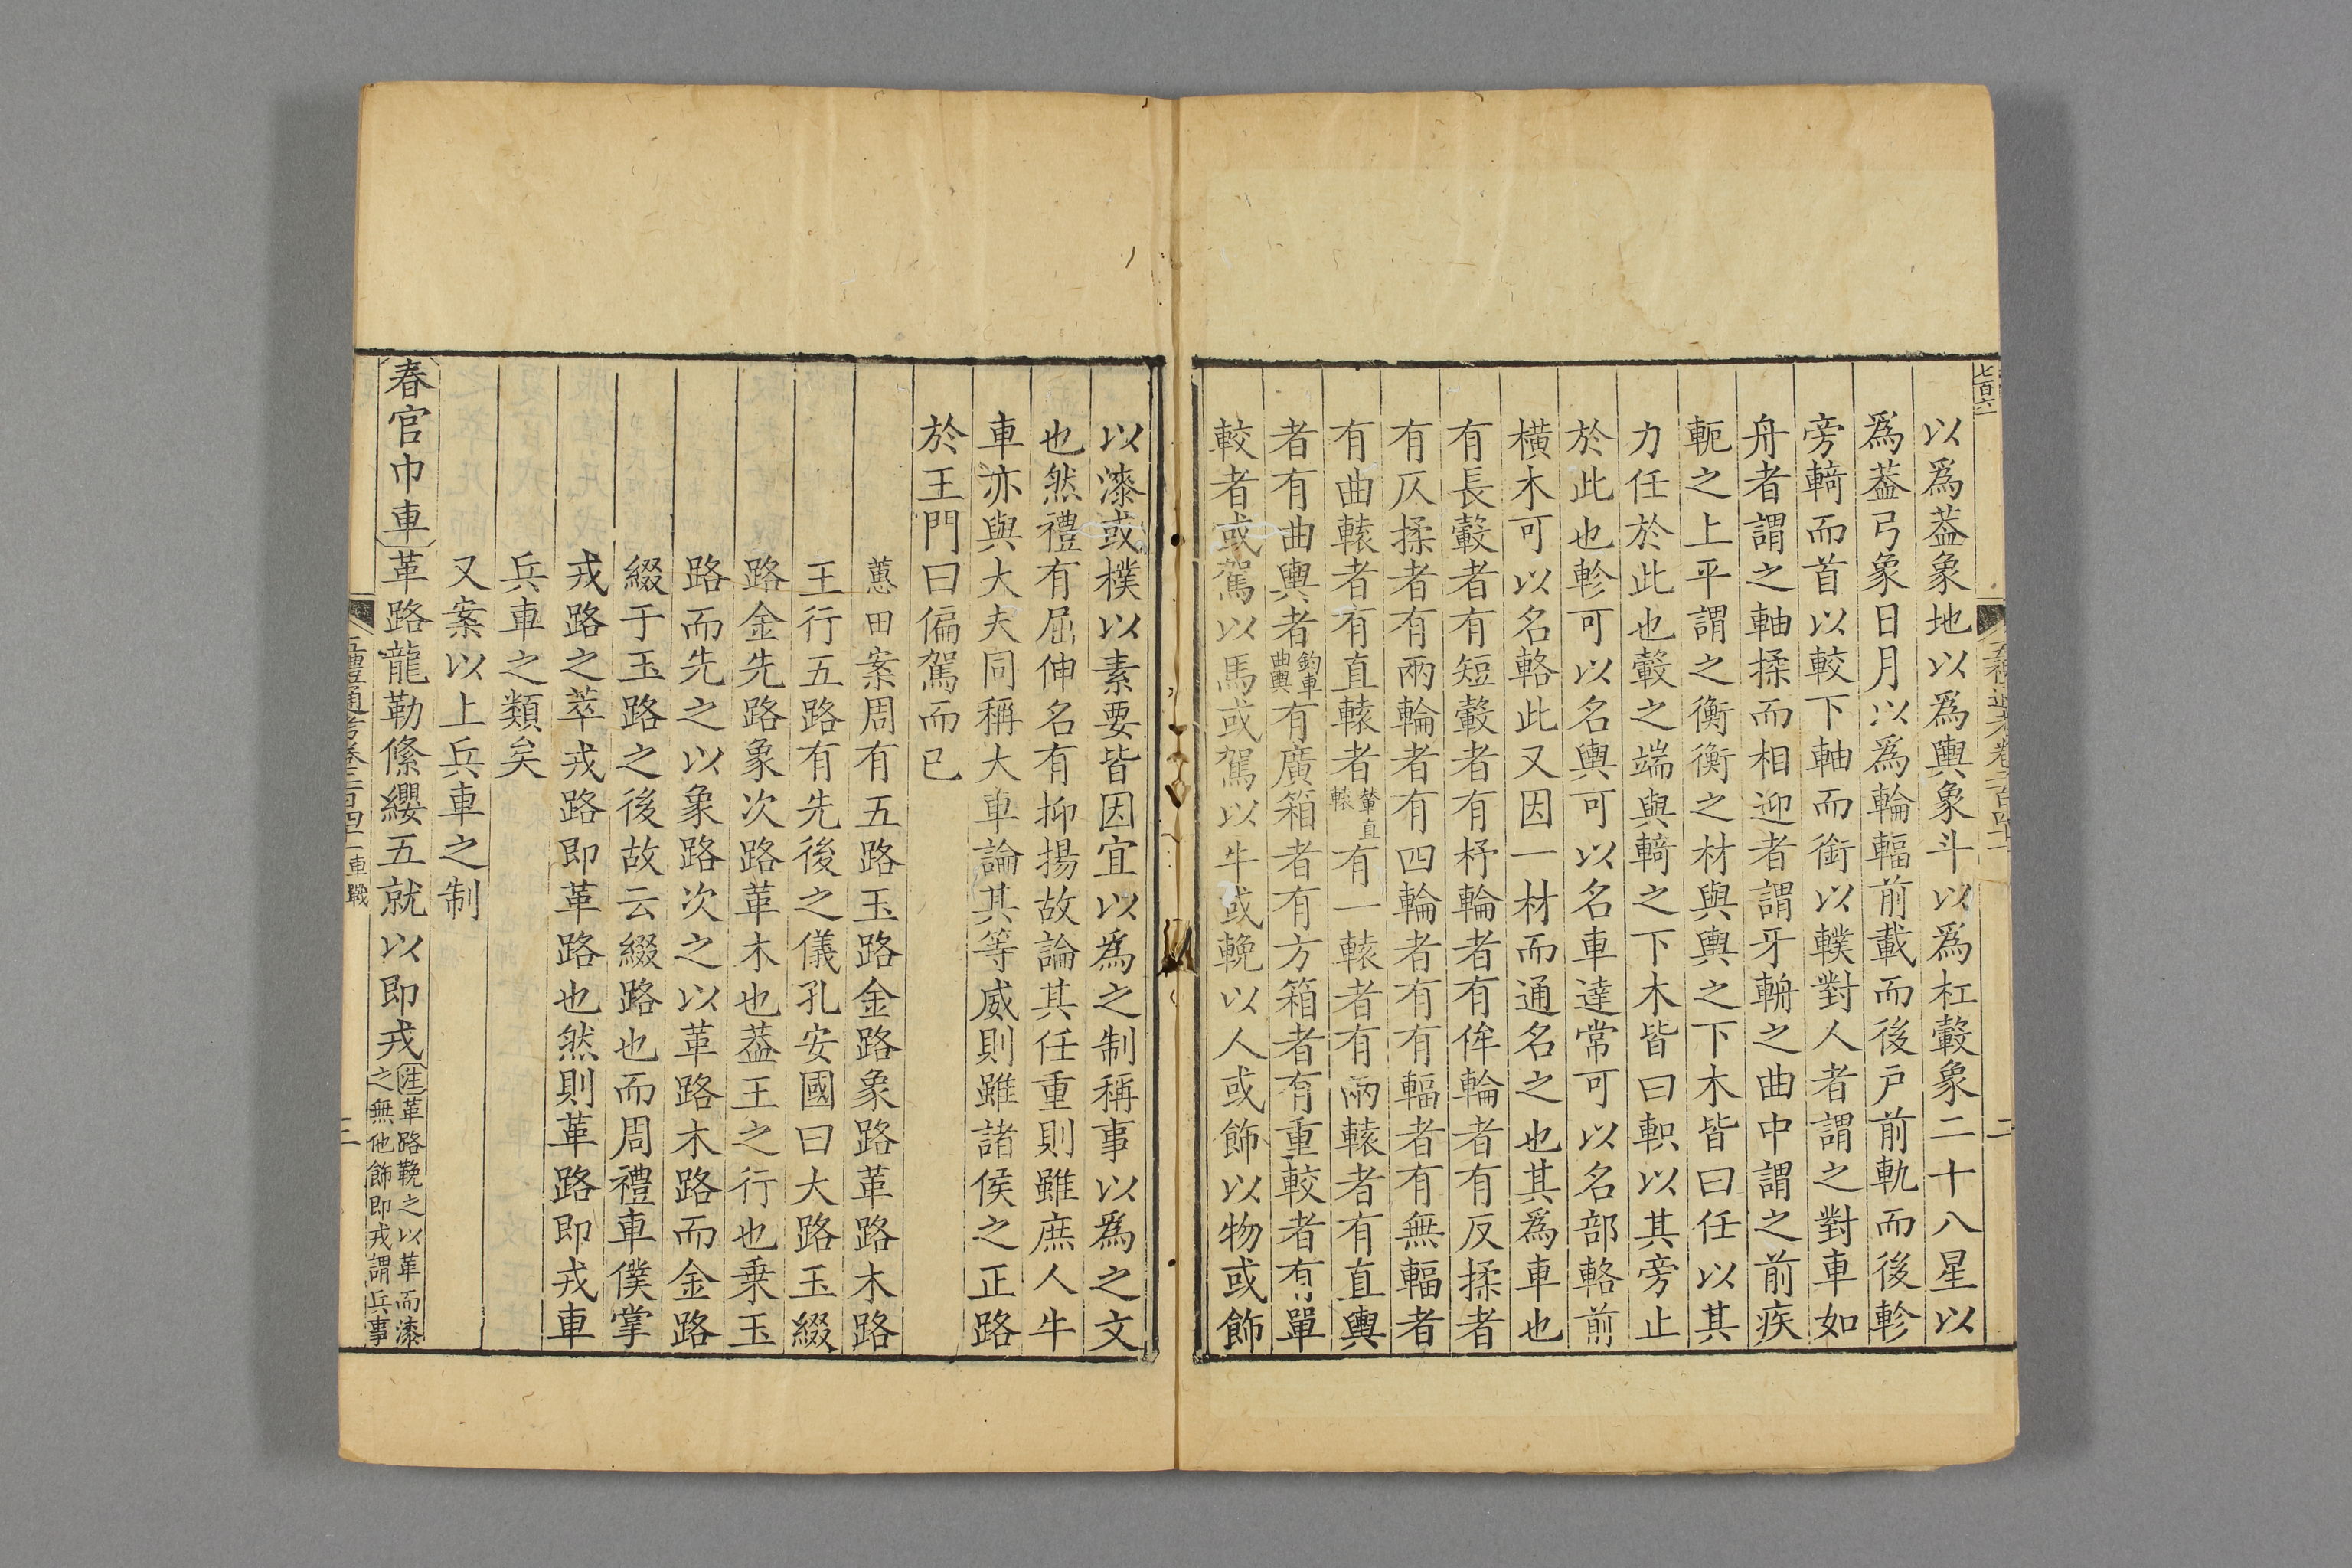 七百六
以爲葢象地以爲輿象斗以爲杠轂象二十八星以
爲葢弓象日月以爲輪輻前載而後戸前軌而後軫
旁輢而首以較下軸而銜以轐對人者謂之對車如
舟者謂之軸揉而相迎者謂牙輈之曲中謂之前疾
軛之上平謂之衡衡之材與輿之下木皆曰任以其
力任於此也轂之端與輢之下木皆曰軹以其旁止
於此也軫可以名輿可以名車達常可以名部輅前
橫木可以名輅此又因一材而通名之也其爲車也
有長轂者有短轂者有杼輪者有侔輪者有反揉者
有仄揉者有兩輪者有四輪者有有輻者有無輻者
有曲轅者有直轅者輦直轅有一轅者有兩轅者有直輿
者有曲輿者鈎車曲輿有廣箱者有方箱者有重較者有單
較者或駕以馬或駕以牛或輓以人或飾以物或飾
以漆或樸以素要皆因宜以爲之制稱事以爲之文
也然禮有屈伸名有抑揚故論其任重則雖庶人牛
車亦與大夫同稱大車論其等威則雖諸侯之正路
於王門曰偏駕而已
蕙田案周有五路玉路金路象路革路木路
王行五路有先後之儀孔安國曰大路玉綴
路金先路象次路革木也葢王之行也乗玉
路而先之以象路次之以革路木路而金路
綴于玉路之後故云綴路也而周禮車僕掌
戎路之萃戎路即革路也然則革路即戎車
兵車之類矣
又案以上兵車之制
春官巾車革路龍勒條纓五就以即戎注革路鞔之以革而漆之無他飾即戎謂兵事
五禮通考卷二百四十一 車戰
三